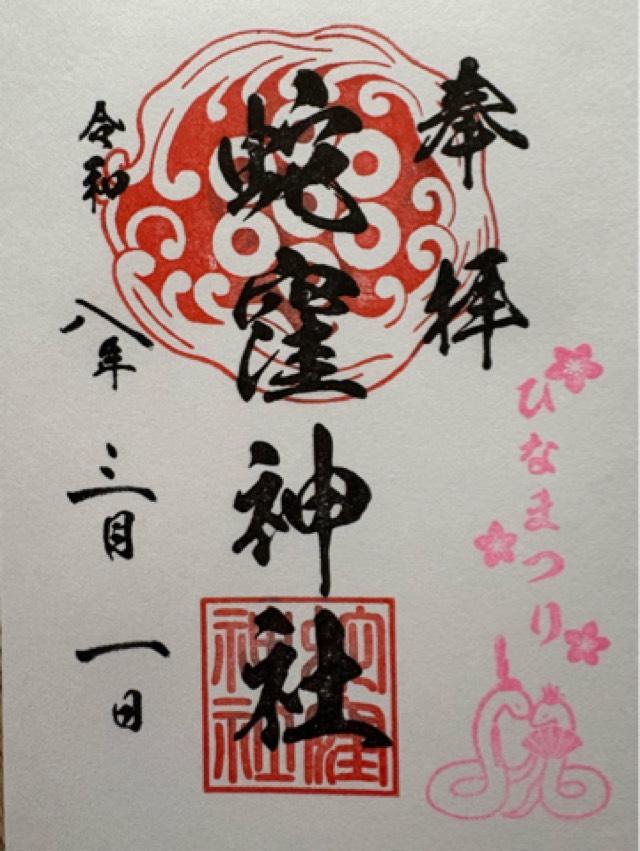 奉拝
ひなまつり
蛇窪神社
蛇窪
神社
令和八年三月一日